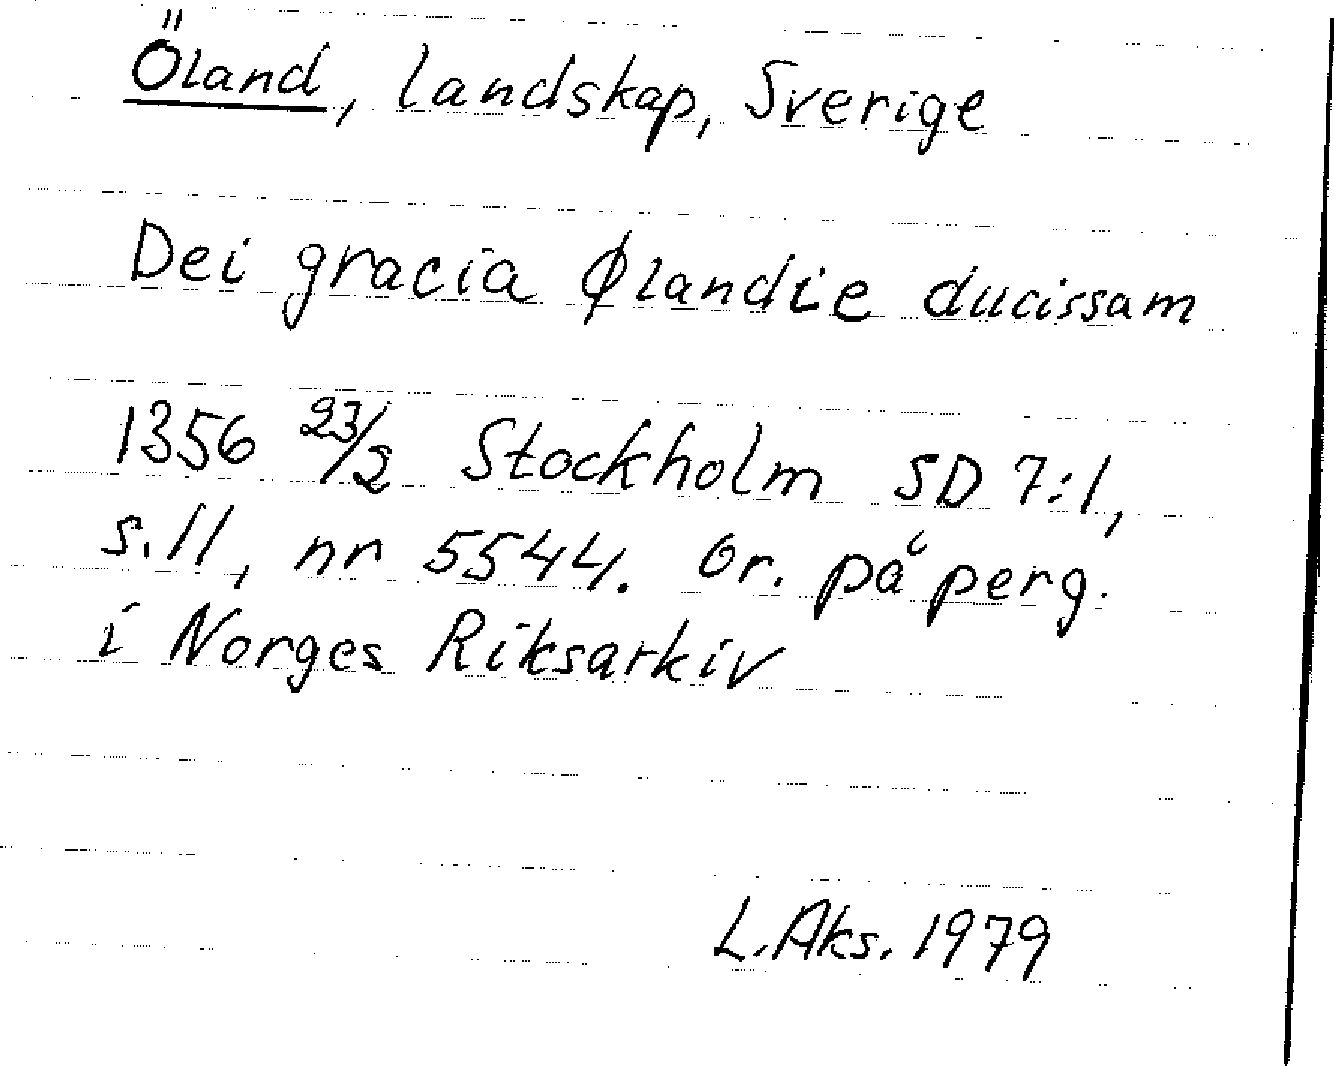 Öland, landskap, Sverige
Dei gracia Ølandie ducissam
1356 23/2 Stockholm SD 7:1,
s.11, nr 5544. Or. på perg.
i Norges Riksarkiv
L.Aks. 1979